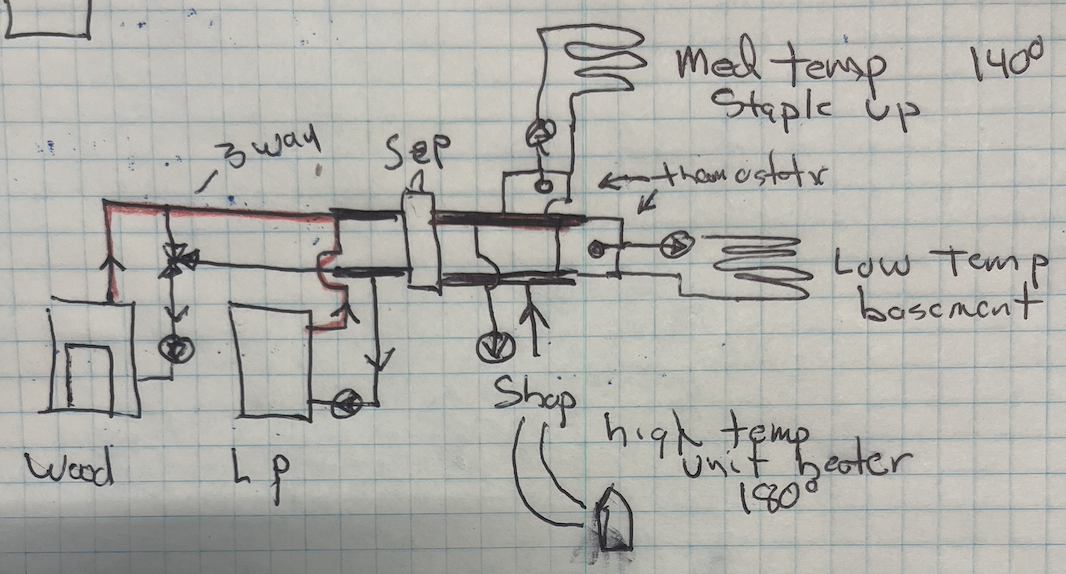 Med temp 140°
Staple up
3 way
Sep
thamostatx
Low Temp
basement
Shop
high temp
unit heater
180°
Wood
Lp